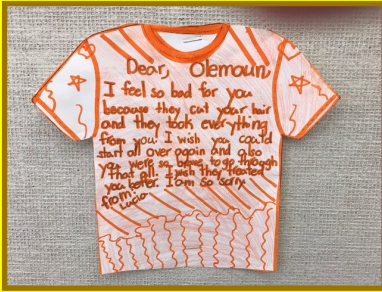 Dear, Olemaun
I feel so bad for you
because they cut your hair
and they took everything
from you. I wish you could
start all over again and also
you were so brave to go through
that all. I wish they treated
you beter. I am so sorry.
from:
Lucia